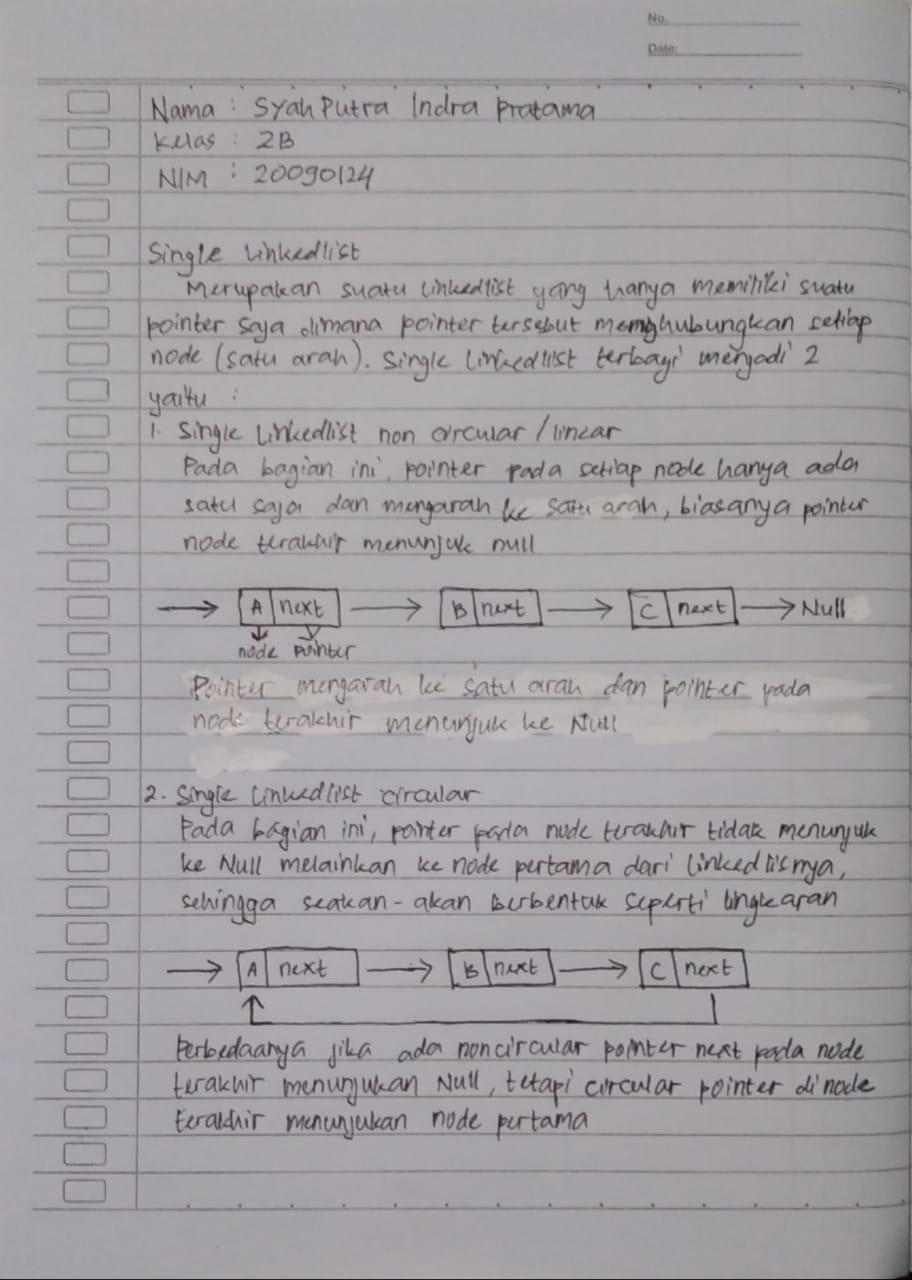 No.
Date:
Nama : Syah Putra Indra Pratama
Kelas : 2B
NIM : 20090124
Single Linkedlist
Merupakan suatu linkedlist yang hanya memiliki suatu
pointer saja dimana pointer tersebut memghubungkan setiap
node (satu arah). Single linkedlist terbagi menjadi 2
yaitu :
1. Single Linkedlist non circular / linear
Pada bagian ini, pointer pada setiap node hanya ada
satu saja dan mengarah ke satu arah, biasanya pointer
node terakhir menunjuk null
A next B next C next Null
node pointer
Pointer mengarah ke satu arah dan pointer pada
node terakhir menunjuk ke Null
2. Single Linkedlist circular
Pada bagian ini, pointer pada node terakhir tidak menunjuk
ke Null melainkan ke node pertama dari linkedlisnya,
sehingga seakan-akan berbentuk seperti lingkaran
A next B next C next
Perbedaanya jika ada noncircular pointer next pada node
terakhir menunjukan Null, tetapi circular pointer di node
terakhir menunjukan node pertama